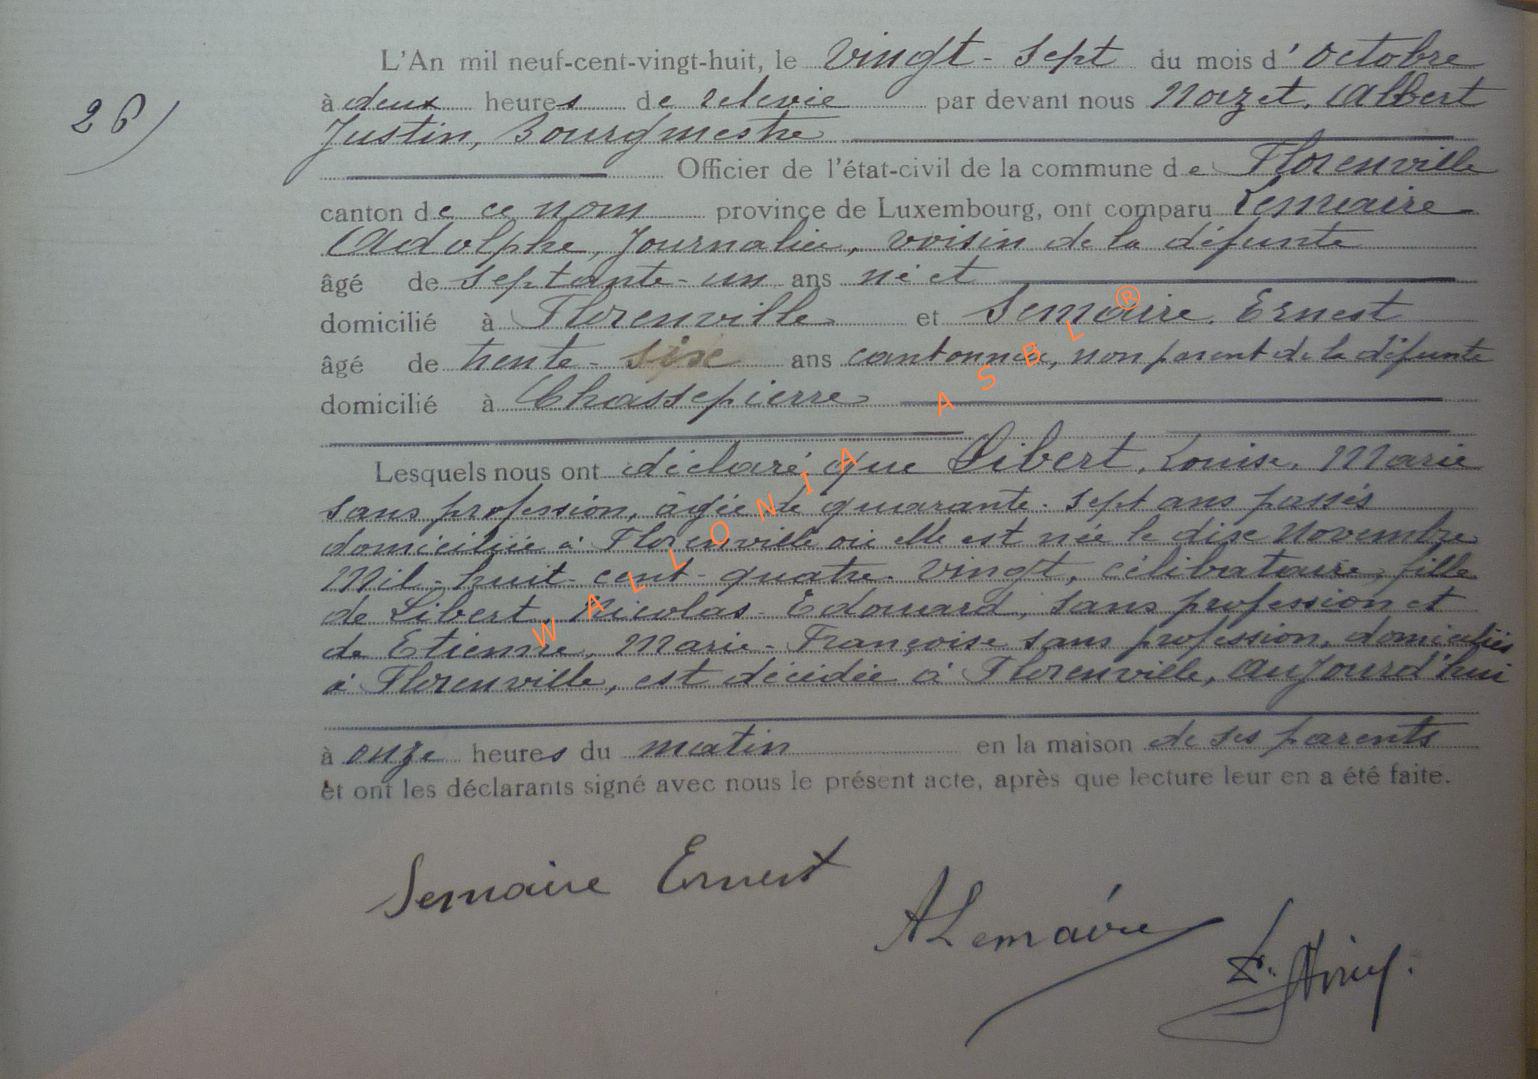 L'An mil neuf-cent-vingt-huit, le vingt-sept du mois d'Octobre
26)
à deux heures de relevée par devant nous Nozet, Albert
Justin, Bourgmestre
Officier de l'état-civil de la commune de Florenville
canton de ce nom province de Luxembourg, ont comparu Lemaire
Adolphe, Journalier, voisin de la défunte
âgé de septante-un ans né et
domicilié à Florenville et Semaire, Ernest
âgé de trente-six ans cantonnier, non parent de la défunte
domicilié à Chassepierre
Lesquels nous ont déclaré que Libert, Louise, Marie
sans profession, âgée de quarante-sept ans passés
domiciliée à Florenville où elle est née le dix Novembre
Mil-huit-cent-quatre-vingt, célibataire, fille
de Libert, Nicolas-Edouard, sans profession et
de Etienne, Marie-Françoise sans profession, domiciliés
à Florenville, est décédée à Florenville, aujourd'hui
à onze heures du matin en la maison de ses parents
et ont les déclarants signé avec nous le présent acte, après que lecture leur en a été faite.
Semaire Ernest
ALemaire
WALLONIA ASBL ®